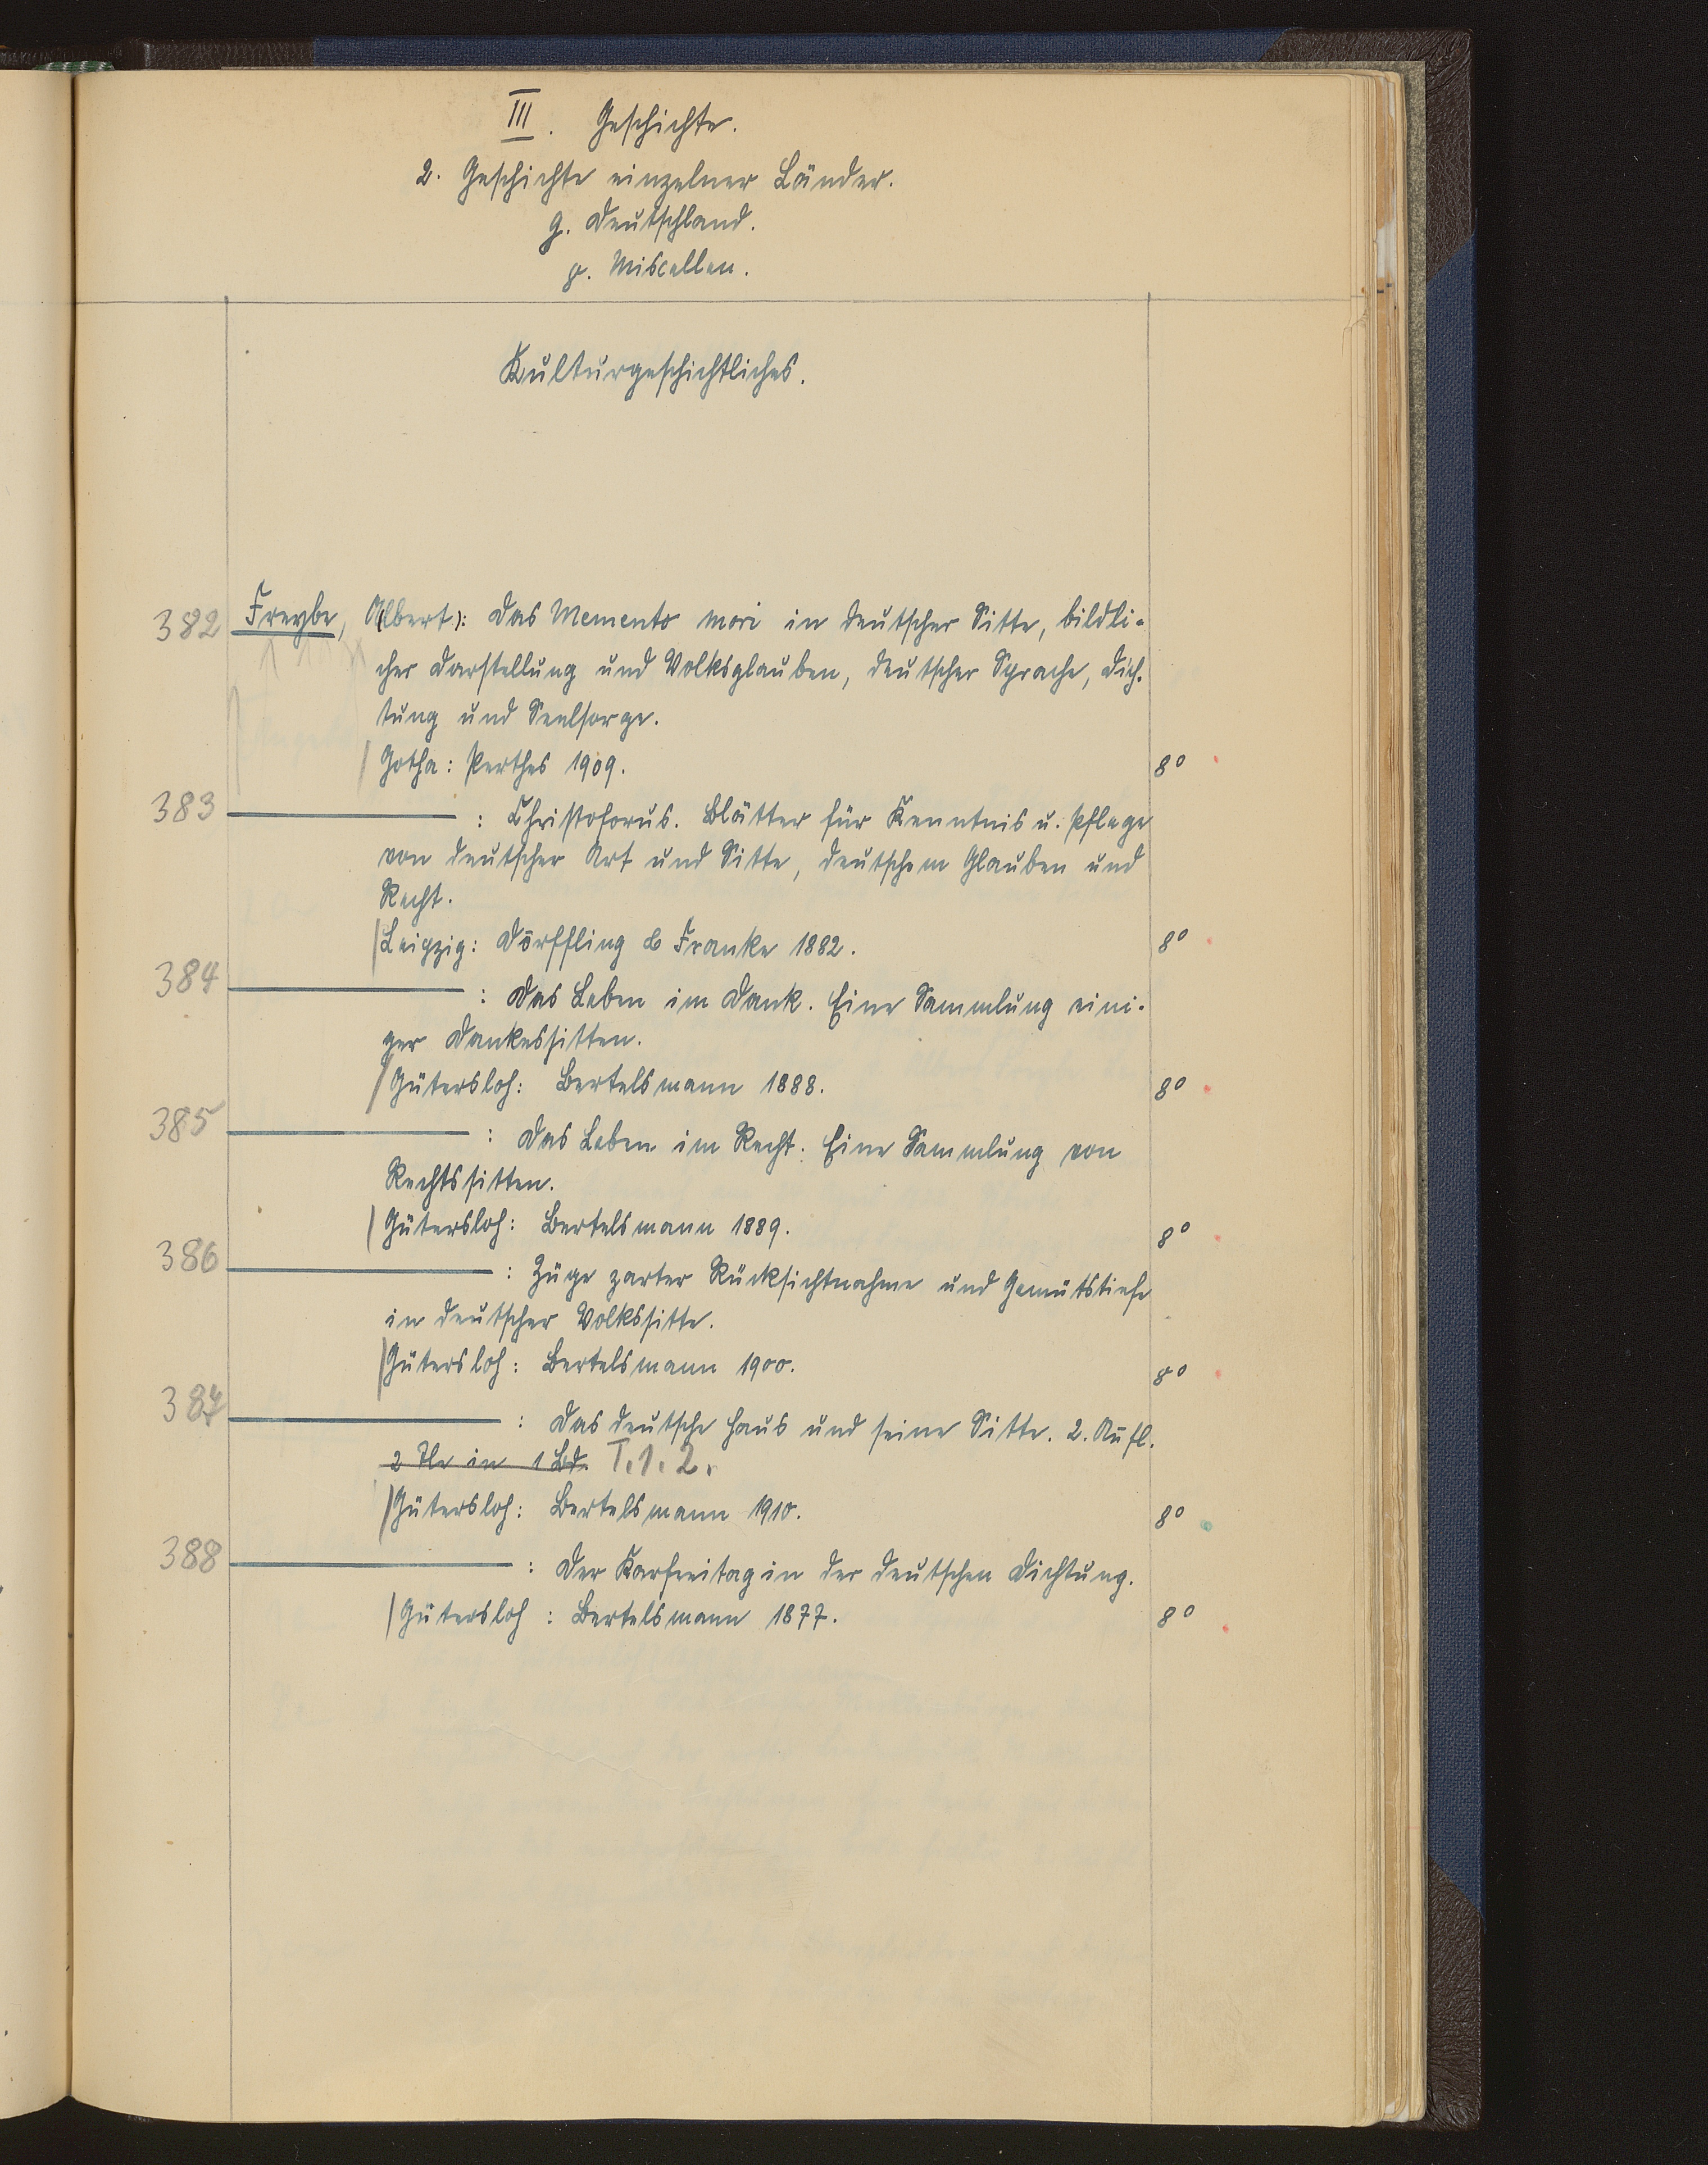 III. Geschichte.
2. Geschichte einzelner Länder.
g. Deutschland.
p. Miscellen.
Kulturgeschichtliches.
382 Freybe, A(lbert): Das Memento mori in deutscher Sitte, bildli-
cher Darstellung und Volksglauben, deutscher Sprache, Dich-
tung und Seelsorge.
/Gotha: Perthes 1909. 8°
383 ——— : Christoforus. Blätter für Kenntnis u. Pflege
von deutscher Art und Sitte, deutschem Glauben und
Recht.
/Leipzig: Dörffling & Franke 1882. 8°
384 ——— : Das Leben im Dank. Eine Sammlung eini-
ger Dankessitten.
/Gütersloh: Bertelsmann 1888. 8°
385 ——— : Das Leben im Recht. Eine Sammlung von
Rechtssitten.
/Gütersloh: Bertelsmann 1889. 8°
386 ——— : Züge zarter Rücksichtnahme und Gemütstiefe
in deutscher Volkssitte.
/Gütersloh: Bertelsmann 1900. 8°
387 ——— : Das deutsche Haus und seine Sitte. 2. Aufl.
2 Tle in 1 Bd. T. 1. 2.
/Gütersloh: Bertelsmann 1910. 8°
388 ——— : Der Karfreitag in der deutschen Dichtung.
/Gütersloh: Bertelsmann 1877. 8°